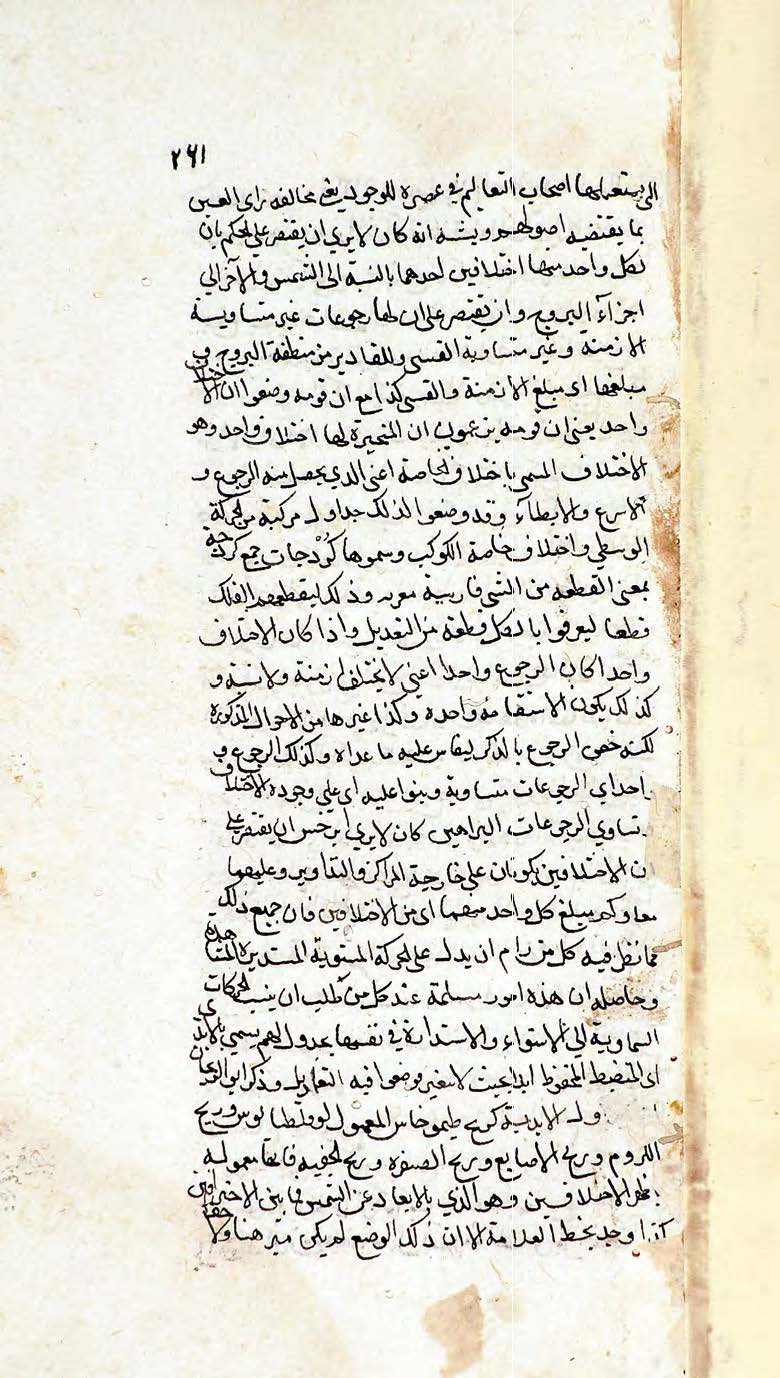 ٢٦١
التى يستعملها اصحاب التعاليم فى عصره للوجود يعنى مخالفه راى العين
بما يقتضيه اصولهم ويشبه انه كان لا يرى ان يقتصر على الحكم بان
لكل واحد منها اختلافين احدهما بالنسبة الى الشمس والآخر الى
اجزآء البروج وان يقتصر على ان لها رجوعات غير متساوية
الازمنة وغير متساوية القسى والمقادير من منطقة البروج وان
مبلغها اى مبلغ الازمنة والقسى كذا مع ان قومه وضعوا ان الاختلاف
واحد يعنى ان قومه يزعمون ان المتحيرة لها اختلاف واحد وهو
الاختلاف المسمى باختلاف الخاصة اعنى الذي يحصل منه الرجوع و
الاسراع والابطآء وقد وضعوا لذلك جداول مركبة من الحركة
الوسطى واختلاف خاصة الكوكب وسموها كردجات جمع كردجة
بمعنى القطعة من الشى فارسية معربه وذلك ليقطعهم الفلك
قطعا ليعرفوا بالكل قطعة من التعديل واذا كان الاختلاف
واحدا كان الرجوع واحدا اعنى لا يختلف ازمنة ولا نسبة و
كذلك يكون الاستقامة واحدة وكذا غيرها من الاحوال المذكورة
لكنه خص الرجوع بالذكر ليقاس عليه ما عداه وكذلك الرجوع و
احد اى الرجوعات متساوية وبنوا عليه اى على وجود الاختلاف
تساوي الرجوعات البراهين كان لا يرى ابرخس ان يقتصر على
ن الاختلافين يكونان على خارجة المراكز والتداوير وعليهما
معا وكم مبلغ كل واحد منهما اى من الاختلافين فان جميع ذلك
مما نظر فيه كل من رام ان يدل على الحركة المستوية المستديرة المتشابهة
وحاصله ان هذه امور مسلمة عند كل من طلب ان ينسب الحركات
السماوية الى الاستواء والاستدارة فى نفسها بجدول لهم يسمى بالابدى
اى المنضبط المحفوظ ابدا بحيث لا يتغير وضعوا فيه التعاديل وذكر ابو الريحان
ول الابدية كزيج طيموخارس المعمول لوفلطيانوس وزيج
الروم وزيج الاصابع وزيج الصفره وزيج لخفيه فانها معمولة
الاختلافين وهو الذي بالابعاد عن الشمس فما بين الاخيراوين
كذا وجد بخط العلامة الا ان ذلك الوضع لم يكن متبرهنا ولا حقا